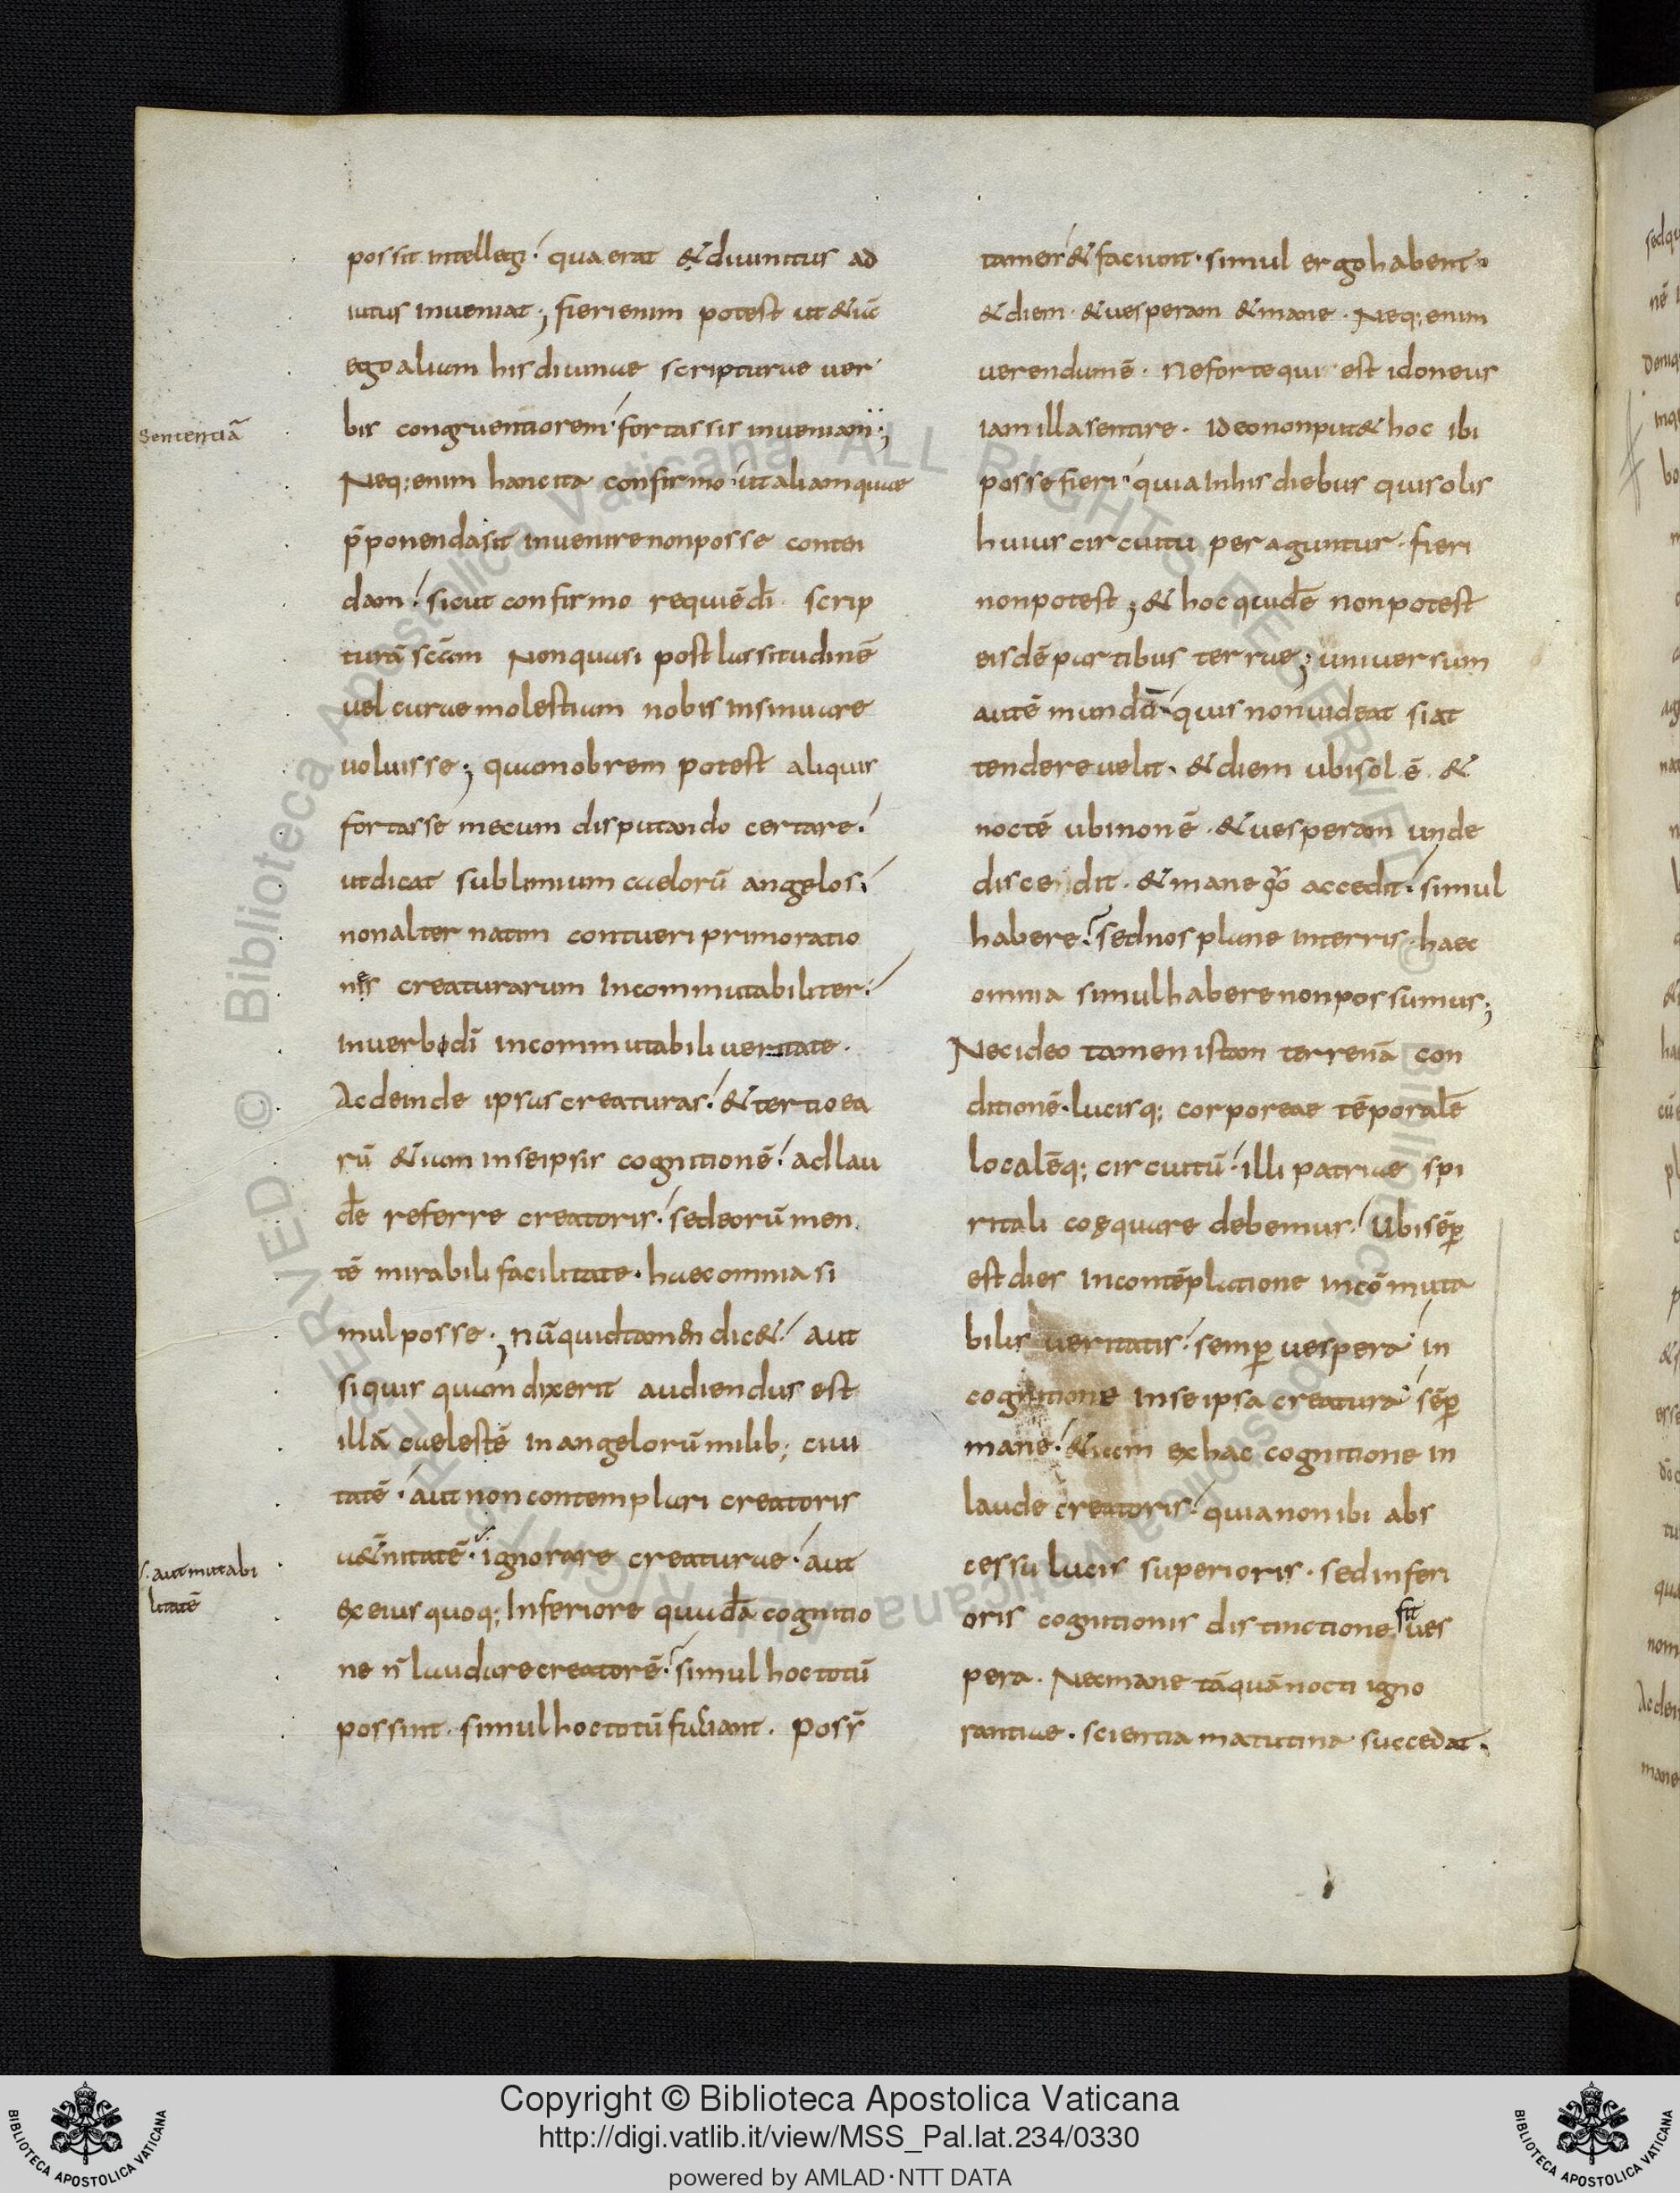 possit intellegi· quaerat &diuinitus ad
iutus inueniat·; fierienim potest ut &iā
egoaliam hisdiuinae scripturae uer
Sententiā
bis congruentiorem· fortassis inueniam·;
Neq;enim hancita confirmo· utaliamquae
p̄ponendasit inuenirenonposse conten
dam· sicut confirmo requiēdī· scrip
turā sc̄am Nonquasi postlassitudinē
uel curaemolestiam nobis insinuare
uoluisse; quamobrem potest aliquis
fortasse mecum disputando certare·
utdicat sublimium caelorū angelos·
nonalternatim contueri primoratio
nes creaturarum incommutabiliter·
inuerbodī incommutabili ueritate·
Acdeinde ipsascreaturas· &tertioea
rū &iam inseipsis cognitionē· adlau
dē referre creatoris· sedeorū men
tē mirabili facilitate· haecomnia si
mulposse·; nūquidtamen dic&· aut
siquis quam dixerit audiendus est
illā caelestē in angelorū milib; ciui
tatē· aut noncontemplari creatoris
u&nitatē· ignorare creaturae· aut
s· autmutabi
litatē
exeiusquoq; inferiore quadā cognitio
ne n̄ laudarecreatorē· simul hoctotū
possint· simulhoctotūfaciant· Poss̄
tamen &faciunt· simul ergohabent·
&diem· &uesperam &mane· Neq;enim
uerendumē· Neforte qui est idoneus
iamillasentire· ideononput&hoc ibi
possefieri· quiainhisdiebus quisolis
huiuscircuitu peraguntur· fieri
nonpotest; &hocquidē nonpotest
eisdēpartibus terrae; uniuersum
autē mundū· quisnonuideat siat
tendereuelit· &diem ubisol ē· &
noctē ubinonē· &uesperam unde
discedit· &mane quo accedit· simul
habere· sednosplane interris· haec
omnia simulhaberenonpossumus;
Necideo tamenistam terrenā con
ditionē· lucisq; corporeae tēporalē
localēq; circuitū· illi patriae spi
ritali coęquare debemus· Ubisēp
estdies incontēplatione incōmuta
bilis ueritatis· semp uespera· in
cognitione inseipsa creatura· sēp
mane· &iam exhac cognitione in
laude creatoris· quianonibi abs
cessu lucis superioris· sedinferi
oris cognitionis distinctione fit ues
pera· Necmane tāquānocti igno
rantiae· scientia matutina succedat·
Copyright © Biblioteca Apostolica Vaticana
http://digi.vatlib.it/view/MSS_Pal.lat.234/0330
powered by AMLAD·NTT DATA
BIBLIOTECA APOSTOLICA VATICANA
BIBLIOTECA APOSTOLICA VATICANA